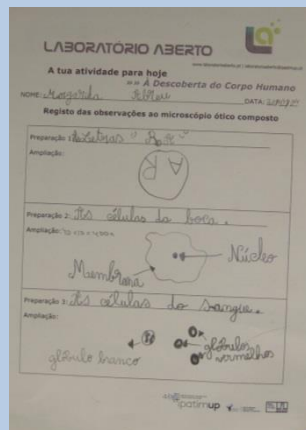 LABORATÓRIO ABERTO
A tua atividade para hoje
À Descoberta do Corpo Humano
NOME: Margarida Abreu DATA:
Registo das observações ao microscópio ótico composto
Preparação 1: As letras "
Ampliação:
A R
Preparação 2: As células da boca.
Ampliação:
Núcleo
Membrana
Preparação 3: As células do sangue.
Ampliação:
glóbulos
vermelhos
glóbulo branco
ipatimup